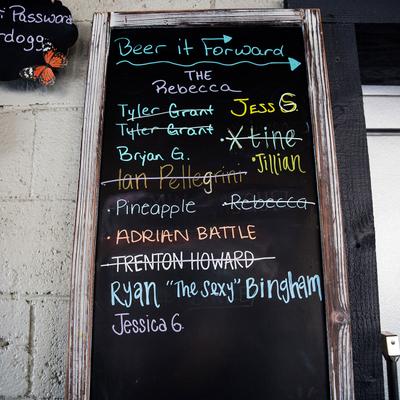 i Password
rdogg
Beer it Forward
THE
Rebecca
Tyler Grant
Jess S.
Tyler Grant
· Xtine
Bryan G.
· Jillian
Ian Pellegrini
· Pineapple
· Rebecca
· ADRIAN BATTLE
· TRENTON HOWARD
Ryan "The Sexy" Bingham
Jessica G.